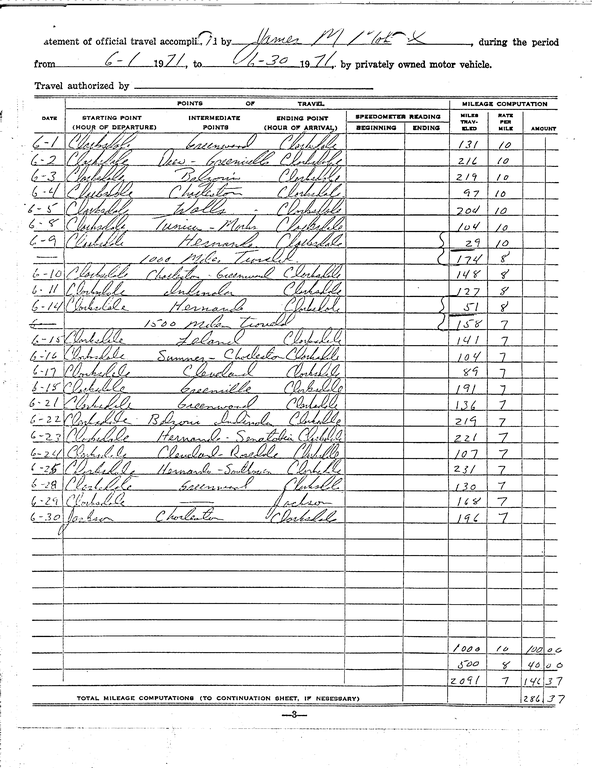 atement of official travel accompli by James M , during the period
from 6-1 1971, to 6-30 1971, by privately owned motor vehicle.
Travel authorized by
POINTS OF TRAVEL MILEAGE COMPUTATION
DATE STARTING POINT (HOUR OF DEPARTURE) INTERMEDIATE POINTS ENDING POINT (HOUR OF ARRIVAL) SPEEDOMETER READING BEGINNING ENDING MILES TRAV- ELED RATE PER MILE AMOUNT
6-1 Clarksdale Greenwood Clarksdale 131 10
6-2 Clarksdale Drew - Greenville Clarksdale 216 10
6-3 Clarksdale Belzoni Clarksdale 219 10
6-4 Clarksdale Charleston Clarksdale 97 10
6-5 Clarksdale Walls - Clarksdale 204 10
6-8 Clarksdale Tunica - Marks Clarksdale 104 10
6-9 Clarksdale Hernando Clarksdale 29 10
— 1000 Miles Traveled 174 8
6-10 Clarksdale Charleston - Greenwood Clarksdale 148 8
6-11 Clarksdale Indianola Clarksdale 127 8
6-14 Clarksdale Hernando Clarksdale 51 8
1500 Miles Traveld 158 7
6-15 Clarksdale Leland Clarksdale 141 7
6-16 Clarksdale Sumner - Charleston Clarksdale 104 7
6-17 Clarksdale Cleveland Clarksdale 89 7
6-18 Clarksdale Greenville Clarksdale 191 7
6-21 Clarksdale Greenwood Clarksdale 136 7
6-22 Clarksdale Belzoni Indianola Clarksdale 219 7
6-23 Clarksdale Hernando - Senatobia Clarksdale 221 7
6-24 Clarksdale Cleveland - Rosedale Clarksdale 107 7
6-25 Clarksdale Hernando - Southaven Clarksdale 231 7
6-28 Clarksdale Greenwood Clarksdale 130 7
6-29 Clarksdale — Jackson 168 7
6-30 Jackson Charleston Clarksdale 196 7
1000 10 100 00
500 8 40 00
2091 7 146 37
TOTAL MILEAGE COMPUTATIONS (TO CONTINUATION SHEET, IF NESESSARY) 286 37
—3—